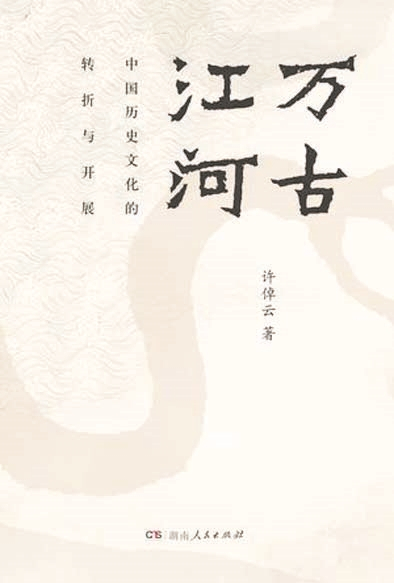 万古
江河
中国历史文化的
转折与开展
许倬云 著
CTS 湖南人民出版社